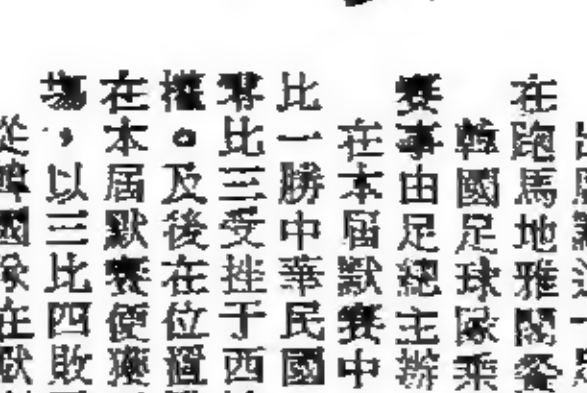 在跑馬地雅閣餐
韓國足球隊乘
賽事由足總主辦
在本屆默賽中
比一勝中華民國
零比三受挫于西
權。及後在位置
在本屆默賽便獲
場,以三比四敗
國隊在默